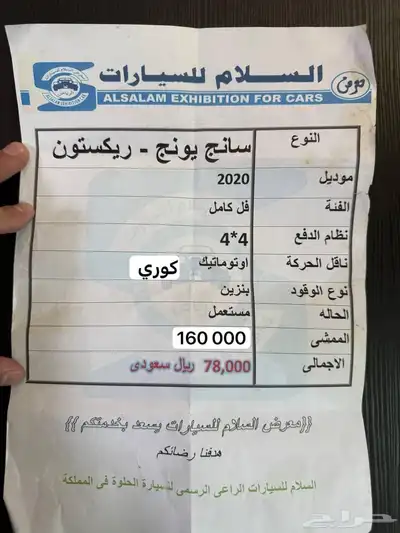 السلام للسيارات
معرض
ALSALAM EXHIBITION FOR CARS
النوع سانج يونج - ريكستون
موديل 2020
الفئة فل كامل
نظام الدفع 4*4
ناقل الحركة اوتوماتيك كوري
نوع الوقود بنزين
الحاله مستعمل
الممشى 160 000
الاجمالى 78,000 ريال سعودى
((معرض السلام للسيارات يسعد بخدمتكم))
هدفنا رضائكم
السلام للسيارات الراعى الرسمى للسيارة الحلوة فى المملكة
حراج